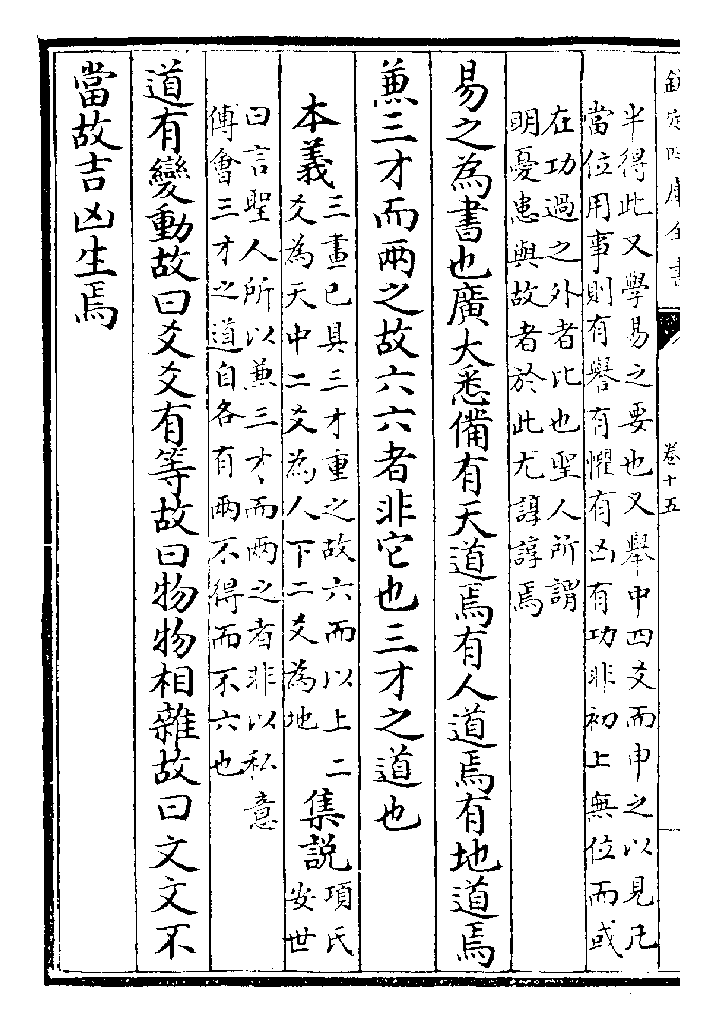 欽定四庫全書
卷十五
半得此又學易之要也又舉中四爻而申之以見凡
當位用事則有譽有懼有凶有功非初上無位而或
在功過之外者比也聖人所謂
明憂患與故者於此尤諄諄焉
易之為書也廣大悉備有天道焉有人道焉有地道焉
兼三才而兩之故六六者非它也三才之道也
本義
三畫已具三才重之故六而以上二
爻為天中二爻為人下二爻為地
集說
項氏
安世
曰言聖人所以兼三才而兩之者非以私意
傅會三才之道自各有兩不得而不六也
道有變動故曰爻爻有等故曰物物相雜故曰文文不
當故吉凶生焉